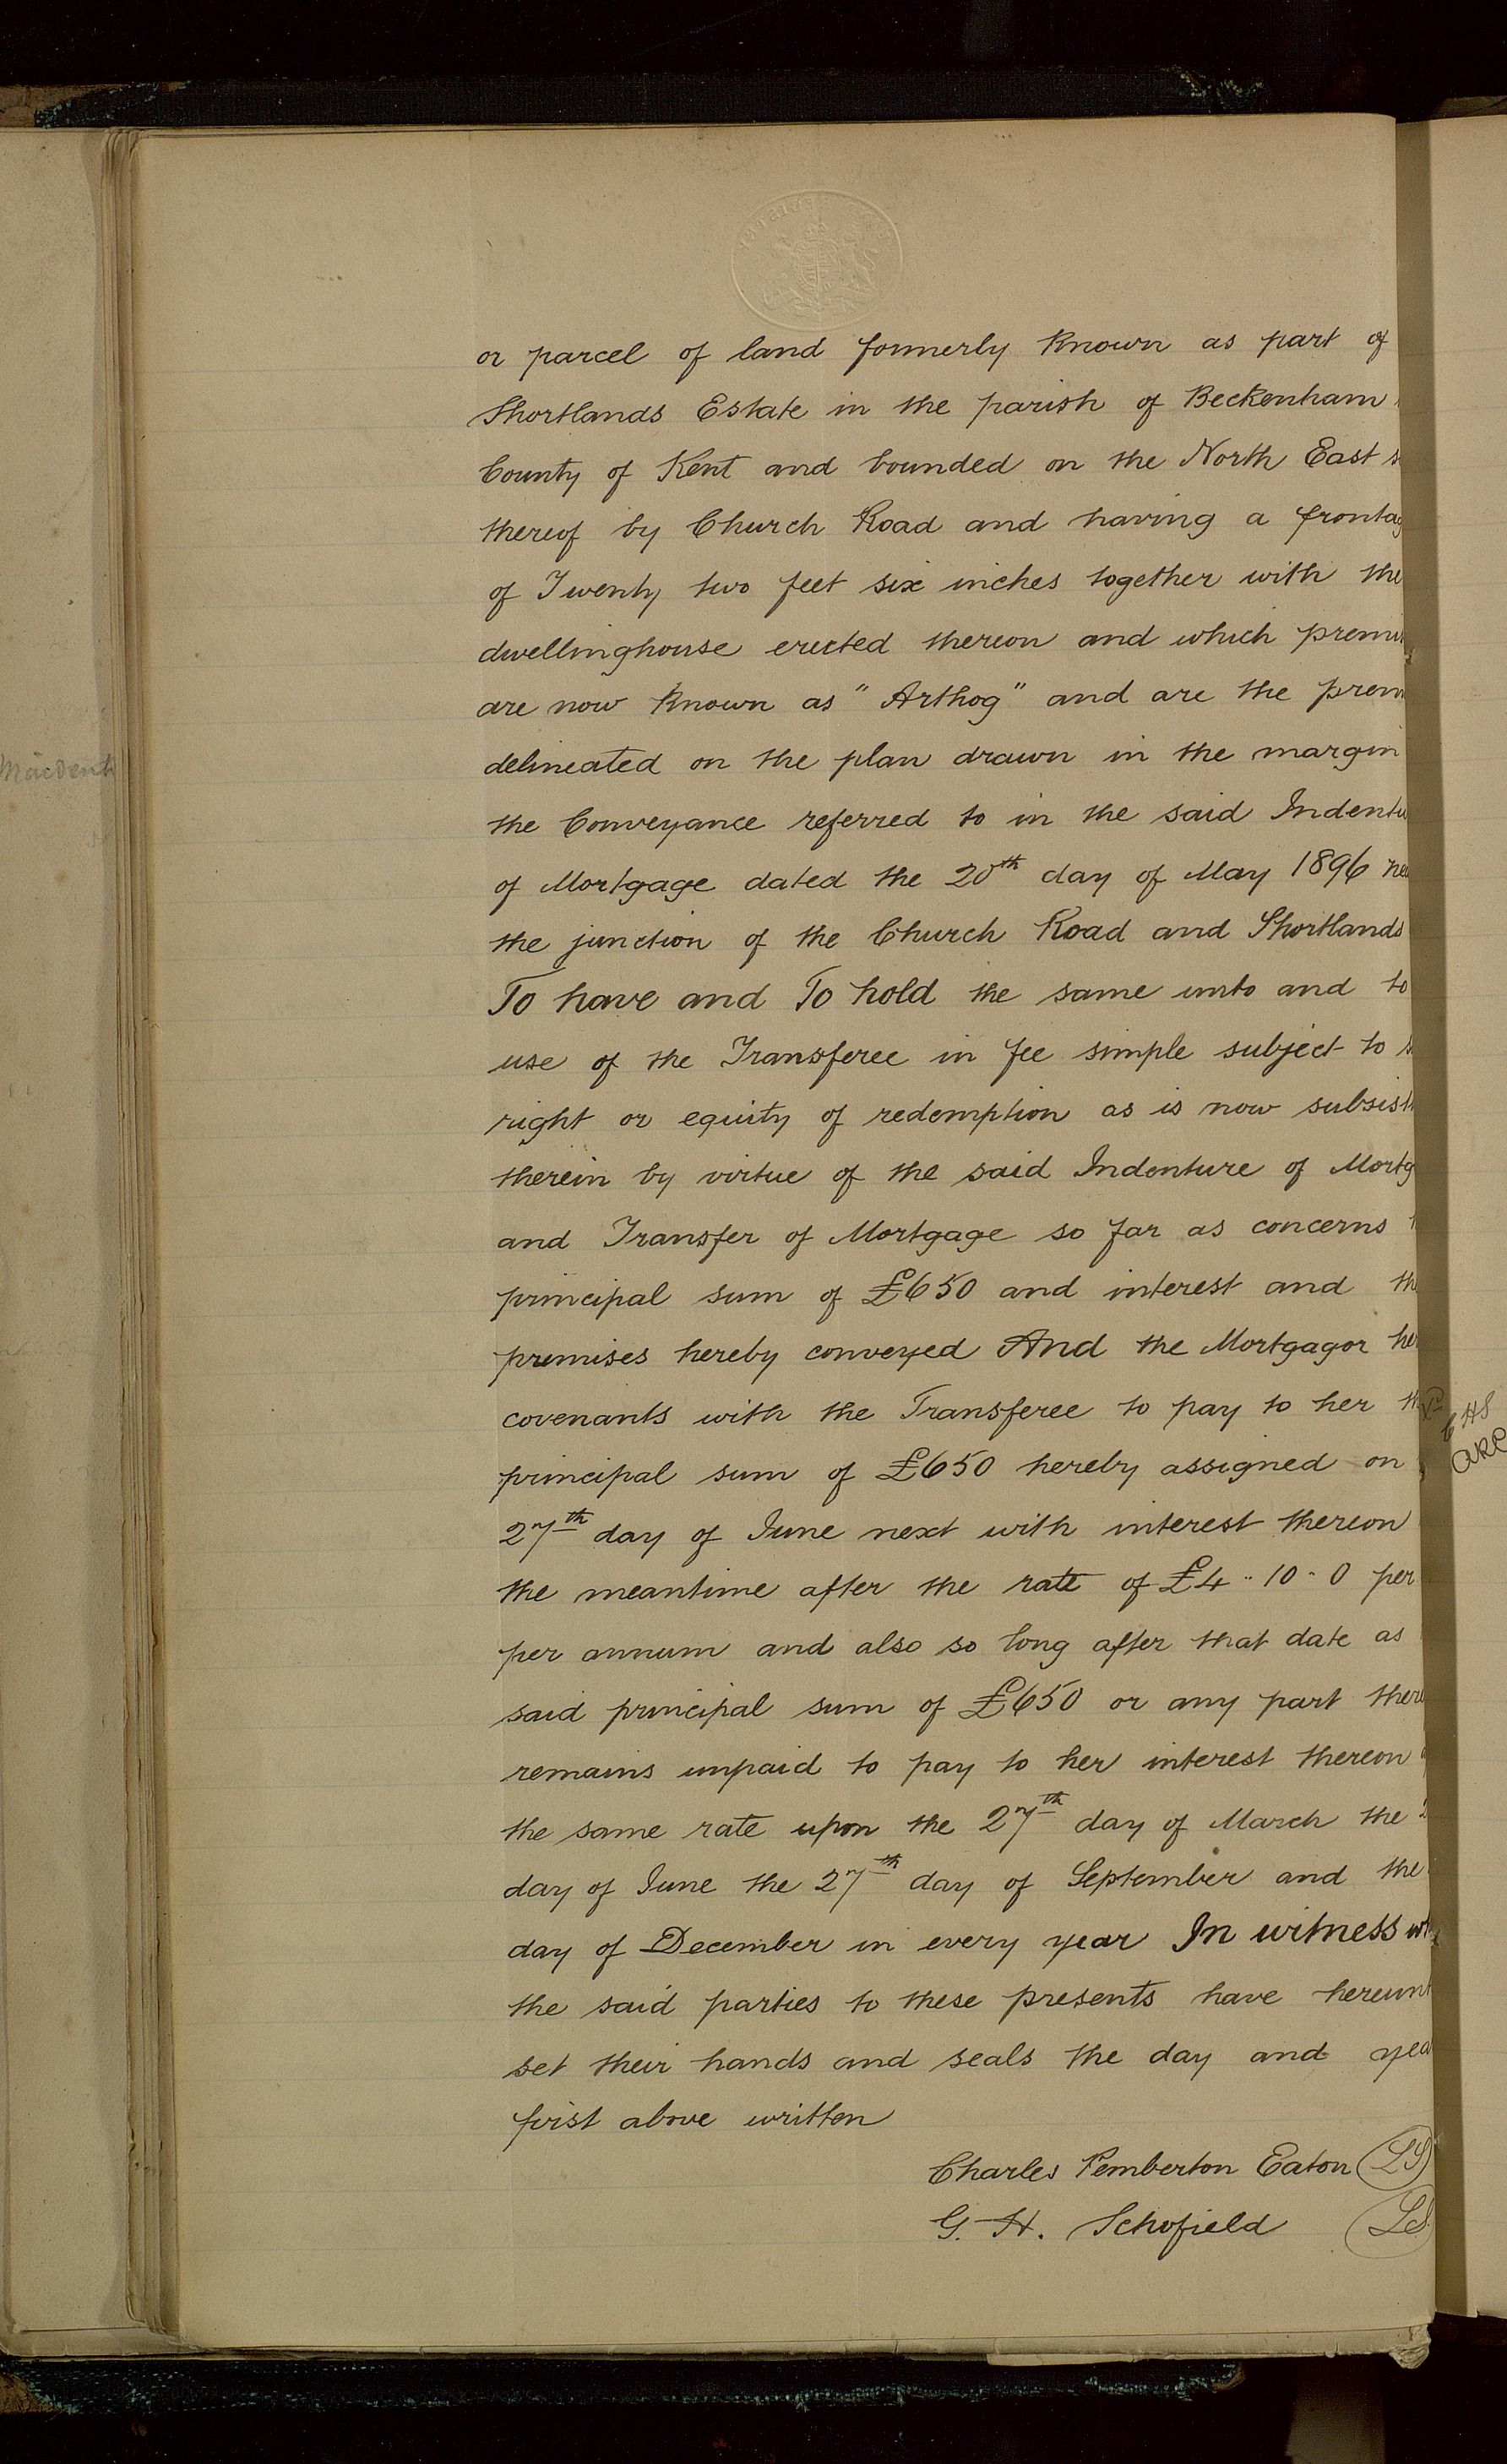 or parcel of land formerly known as part of
Shortlands Estate in the parish of Beckenham
County of Kent and bounded on the North East s
thereof by Church Road and having a frontag
of Twenty two feet six inches together with the
dwellinghouse erected thereon and which premi
are now known as "Arthog" and are the prem
delineated on the plan drawn in the margin
the Conveyance referred to in the said Indentu
of Mortgage dated the 20th day of May 1896 nea
the junction of the Church Road and Shortlands
To have and To hold the same unto and to
use of the Transferee in fee simple subject to s
right or equity of redemption as is now subsist
therein by virtue of the said Indenture of Mortg
and Transfer of Mortgage so far as concerns t
principal sum of £650 and interest and the
premises hereby conveyed And the Mortgagor her
covenants with the Transferee to pay to her th
principal sum of £650 hereby assigned on
27th day of June next with interest thereon
the meantime after the rate of £4 " 10 " 0 per
per annum and also so long after that date as
said principal sum of £650 or any part there
remains unpaid to pay to her interest thereon
the same rate upon the 27th day of March the 2
day of June the 27th day of September and the
day of December in every year In witness wh
the said parties to these presents have hereunt
set their hands and seals the day and yea
first above written
Charles Pemberton Eaton LS
G. H. Schofield LS
CHS